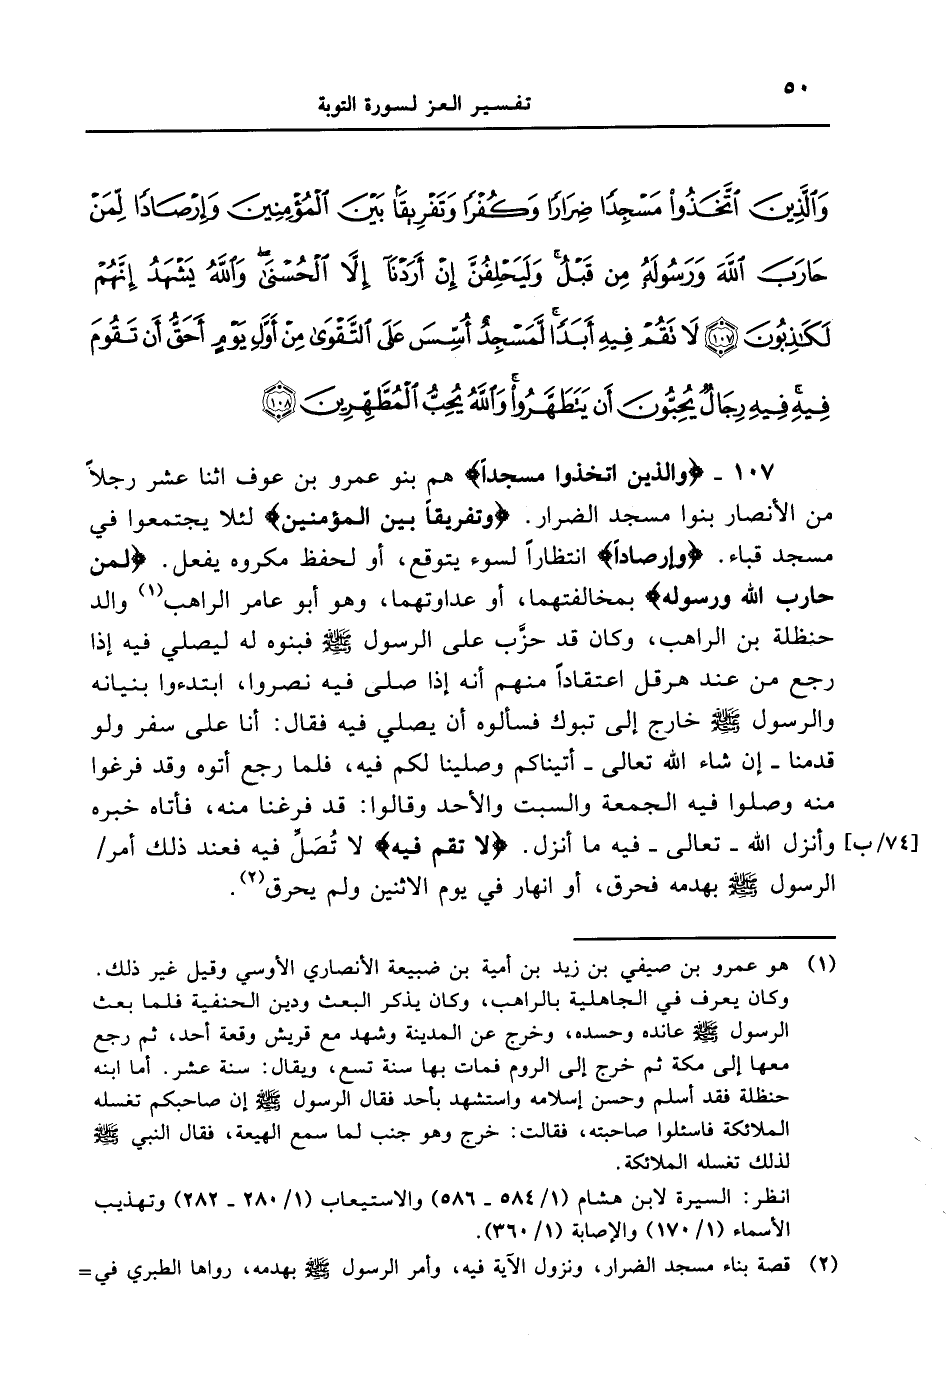 ٥٠
تفسير العز لسورة التوبة
وَالَّذِينَ اتَّخَذُوا مَسْجِدًا ضِرَارًا وَكُفْرًا وَتَفْرِيقًا بَيْنَ الْمُؤْمِنِينَ وَإِرْصَادًا لِّمَنْ
حَارَبَ اللَّهَ وَرَسُولَهُ مِن قَبْلُ وَلَيَحْلِفُنَّ إِنْ أَرَدْنَا إِلَّا الْحُسْنَىٰ وَاللَّهُ يَشْهَدُ إِنَّهُمْ
لَكَاذِبُونَ ١٠٧ لَا تَقُمْ فِيهِ أَبَدًا لَّمَسْجِدٌ أُسِّسَ عَلَى التَّقْوَىٰ مِنْ أَوَّلِ يَوْمٍ أَحَقُّ أَن تَقُومَ
فِيهِ فِيهِ رِجَالٌ يُحِبُّونَ أَن يَتَطَهَّرُوا وَاللَّهُ يُحِبُّ الْمُطَّهِّرِينَ ١٠٨
١٠٧ ـ ﴿والذين اتخذوا مسجداً﴾ هم بنو عمرو بن عوف اثنا عشر رجلاً
من الأنصار بنوا مسجد الضرار. ﴿وتفريقاً بين المؤمنين﴾ لئلا يجتمعوا في
مسجد قباء. ﴿وإرصاداً﴾ انتظاراً لسوء يتوقع، أو لحفظ مكروه يفعل. ﴿لمن
حارب الله ورسوله﴾ بمخالفتهما، أو عداوتهما، وهو أبو عامر الراهب(١) والد
حنظلة بن الراهب، وكان قد حزَّب على الرسول ﷺ فبنوه له ليصلي فيه إذا
رجع من عند هرقل اعتقاداً منهم أنه إذا صلى فيه نصروا، ابتدءوا بنيانه
والرسول ﷺ خارج إلى تبوك فسألوه أن يصلي فيه فقال: أنا على سفر ولو
قدمنا ـ إن شاء الله تعالى ـ أتيناكم وصلينا لكم فيه، فلما رجع أتوه وقد فرغوا
منه وصلوا فيه الجمعة والسبت والأحد وقالوا: قد فرغنا منه، فأتاه خبره
[٧٤/ب] وأنزل الله ـ تعالى ـ فيه ما أنزل. ﴿لا تقم فيه﴾ لا تُصَلِّ فيه فعند ذلك أمر/
الرسول ﷺ بهدمه فحرق، أو انهار في يوم الاثنين ولم يحرق(٢).
(١) هو عمرو بن صيفي بن زيد بن أمية بن ضبيعة الأنصاري الأوسي وقيل غير ذلك.
وكان يعرف في الجاهلية بالراهب، وكان يذكر البعث ودين الحنفية فلما بعث
الرسول ﷺ عانده وحسده، وخرج عن المدينة وشهد مع قريش وقعة أحد، ثم رجع
معها إلى مكة ثم خرج إلى الروم فمات بها سنة تسع، ويقال: سنة عشر. أما ابنه
حنظلة فقد أسلم وحسن إسلامه واستشهد بأحد فقال الرسول ﷺ إن صاحبكم تغسله
الملائكة فاسئلوا صاحبته، فقالت: خرج وهو جنب لما سمع الهيعة، فقال النبي ﷺ
لذلك تغسله الملائكة.
انظر: السيرة لابن هشام (١/ ٥٨٤ ـ ٥٨٦) والاستيعاب (١/ ٢٨٠ ـ ٢٨٢) وتهذيب
الأسماء (١/ ١٧٠) والإصابة (١/ ٣٦٠).
(٢) قصة بناء مسجد الضرار، ونزول الآية فيه، وأمر الرسول ﷺ بهدمه، رواها الطبري في=